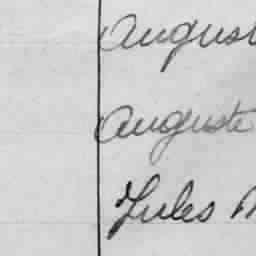 August
Auguste
Jules